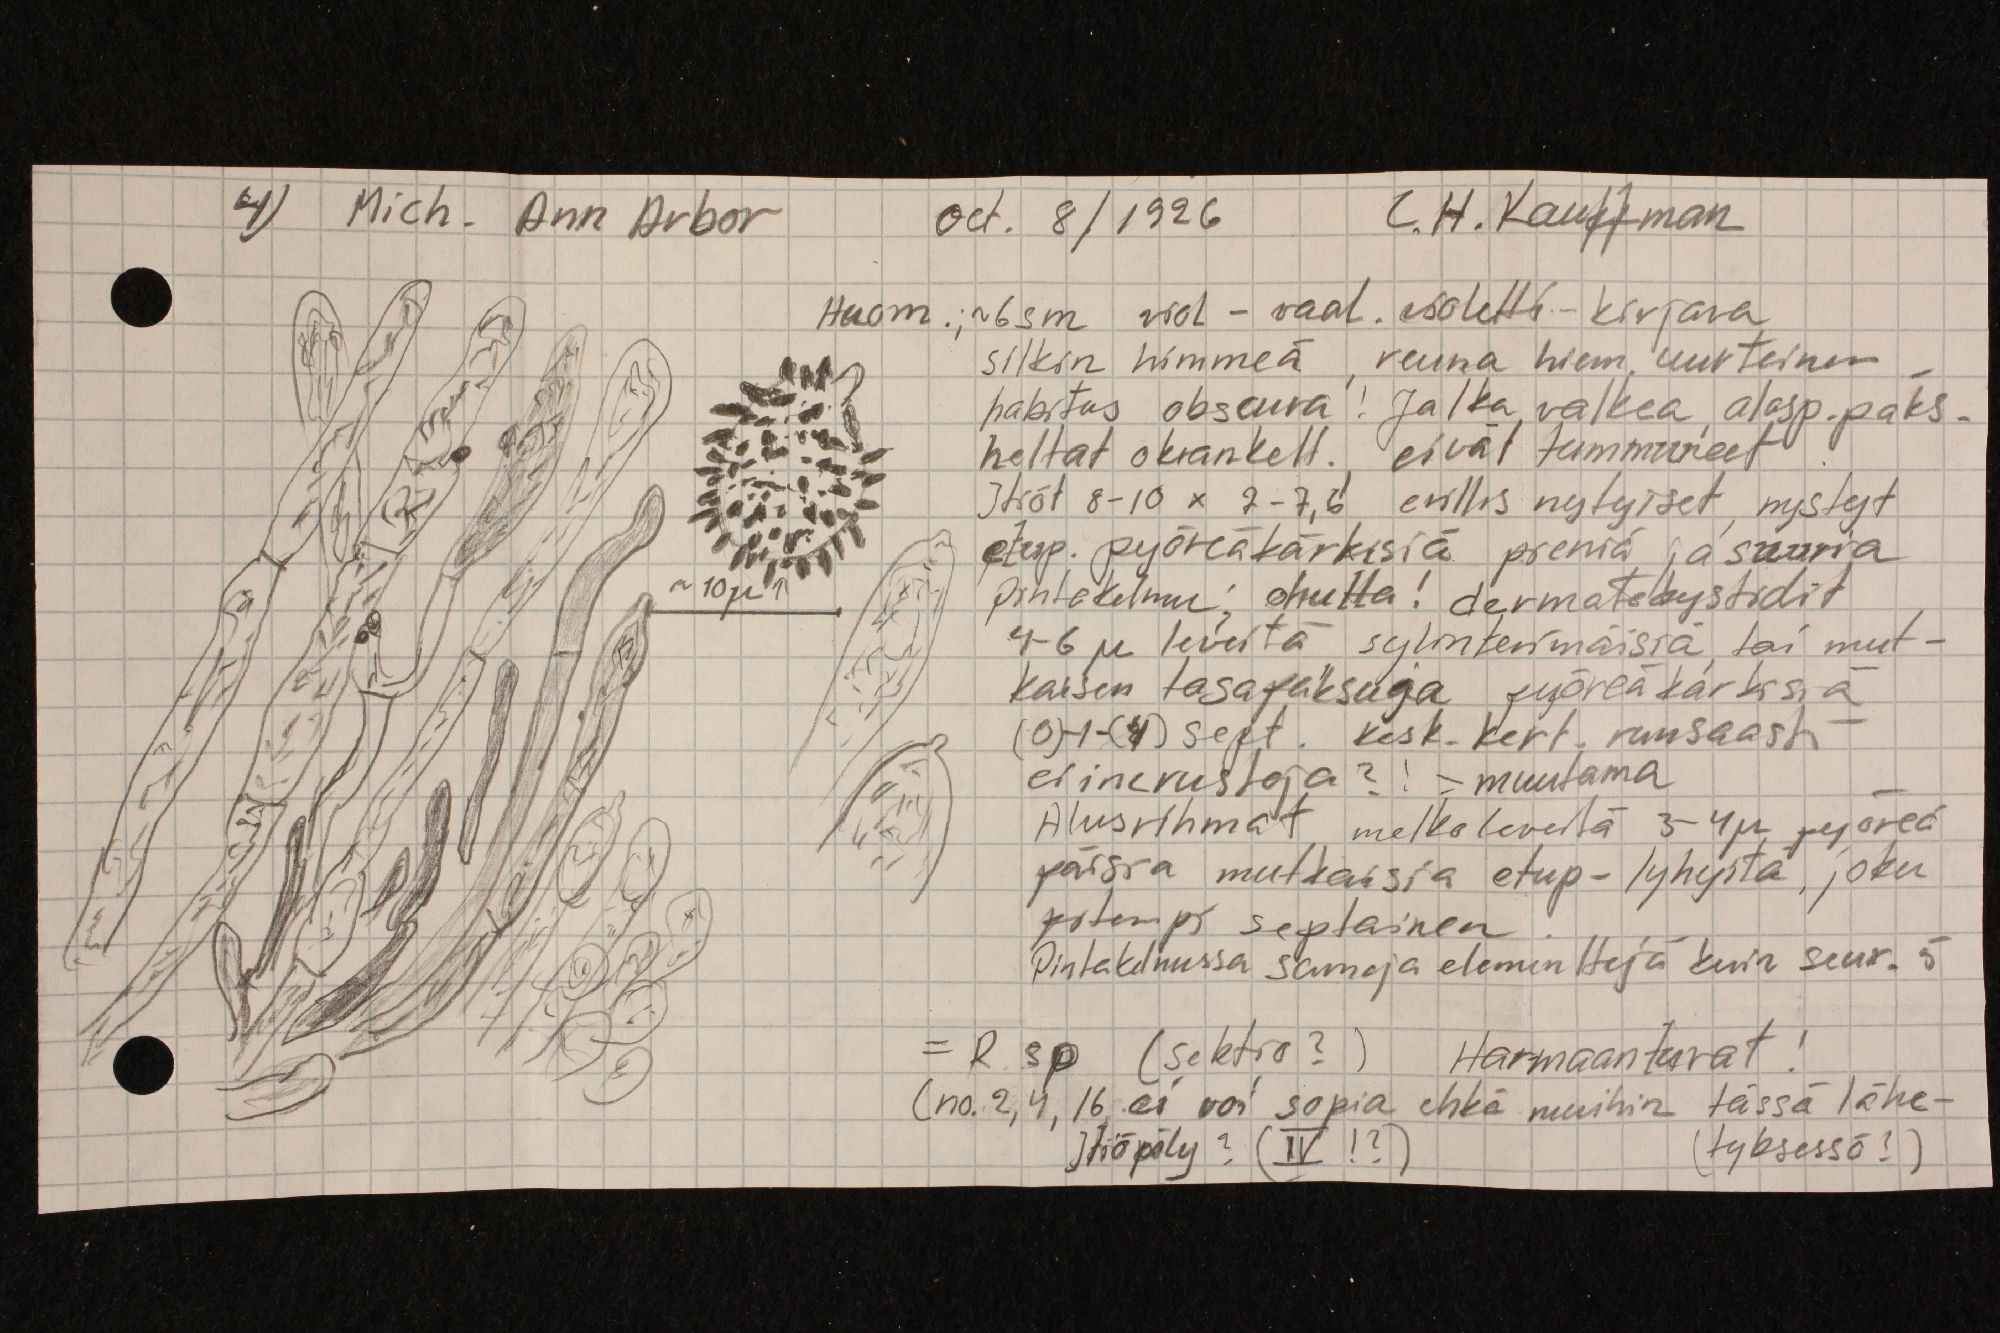 4) Mich. Ann Arbor oct. 8/1926 C.H. Kauffman
Huom.; ~6 sm viol - vaal. violetti - kirjava
silkin himmeä, reuna hiem. uurteinen,
habitus obscura! Jalka valkea, alasp. paks.
heltat okrankelt. eivät tummuneet.
Itiöt 8-10 x 7-7,6 erillis nystyiset, nystyt
etup. pyöreäkärkisiä pieniä ja suuria
Pintakelmu; ohutta! dermatokystidit
4-6 µ leveitä sylinterimäisiä tai mut-
kaisen tasapaksuja pyöreäkärkisiä
(0)-1-(4) sept. kesk-kert. runsaasti
ei incrustoja?! = muutama
Alusrihmat melko leveitä 3-4µ pyöreä
päisiä mutkaisia etup- lyhyitä, joku
pitempi septainen.
Pintakelmussa samoja elementtejä kuin seur. 5
~10µ
= R sp (sektio?) Harmaantuvat!
(no. 2, 4, 16 ei voi sopia ehkä muihin tässä lähe-
Itiöpöly? (IV !?) (tyksessä!)